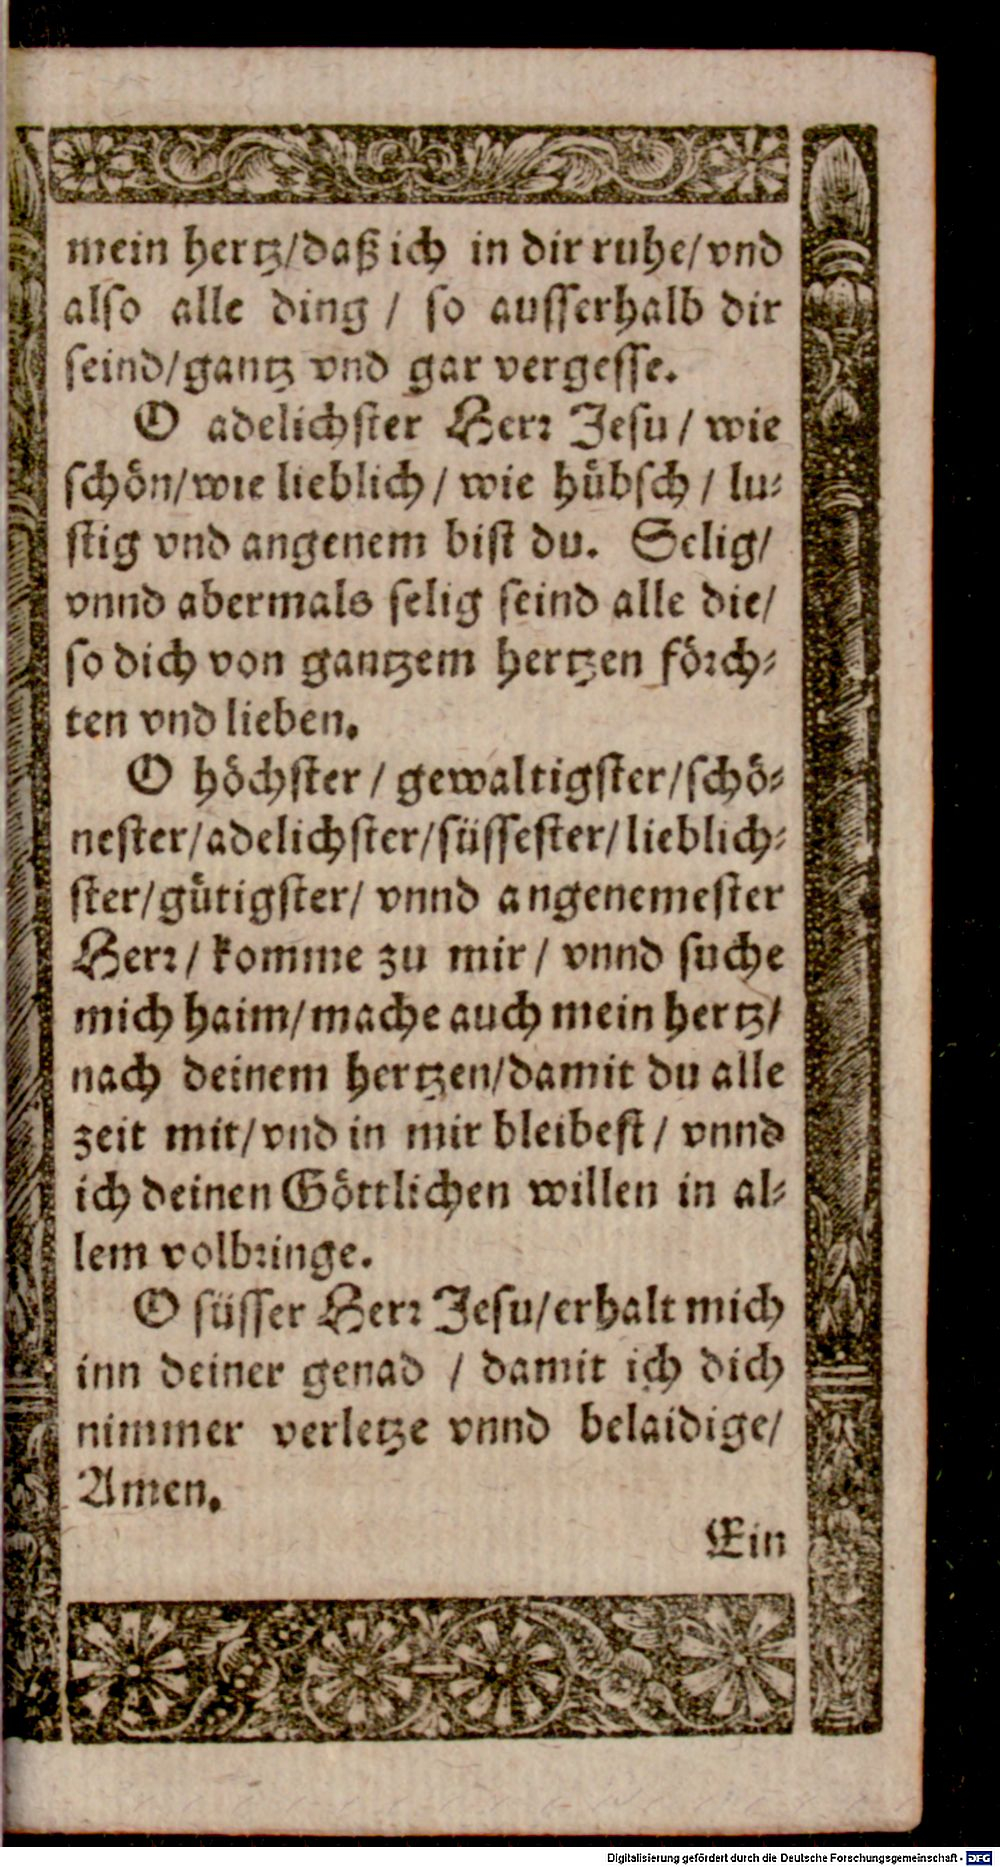 mein hertz/daß ich in dir ruhe/vnd
also alle ding / so ausserhalb dir
seind/gantz vnd gar vergesse.
O adelichster Herr Jesu / wie
schön/wie lieblich / wie hübsch / lu-
stig vnd angenem bist du. Selig/
vnnd abermals selig seind alle die/
so dich von gantzem hertzen förch-
ten vnd lieben.
O höchster / gewaltigster/schö-
nester/adelichster/süssester/lieblich-
ster/gütigster/ vnnd angenemester
Herr / komme zu mir / vnnd suche
mich haim/mache auch mein hertz/
nach deinem hertzen/damit du alle
zeit mit/vnd in mir bleibest / vnnd
ich deinen Göttlichen willen in al-
lem volbringe.
O süsser Herr Jesu/erhalt mich
inn deiner genad / damit ich dich
nimmer verletze vnnd belaidige/
Amen.
Ein
Digitalisierung gefördert durch die Deutsche Forschungsgemeinschaft - DFG